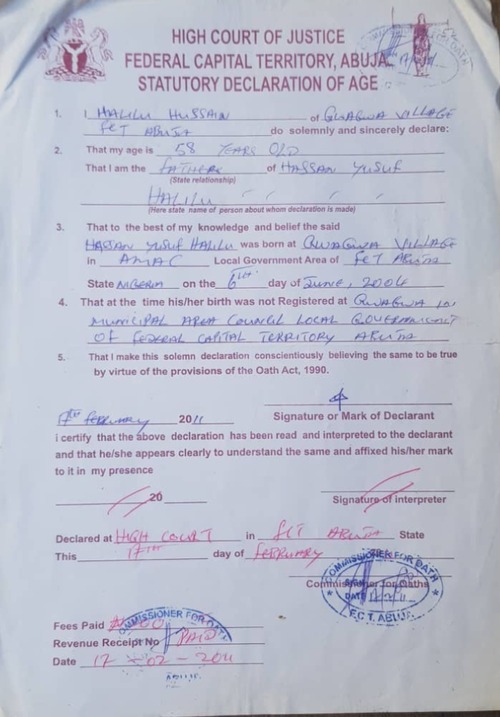 HIGH COURT OF JUSTICE
FEDERAL CAPITAL TERRITORY, ABUJA
STATUTORY DECLARATION OF AGE
1. I HALILU HUSSAIN of GWAGWA VILLAGE
FCT ABUJA do solemnly and sincerely declare:
2. That my age is 58 YEARS OLD
That I am the FATHER of HASSAN YUSUF
(State relationship)
HALILU
(Here state name of person about whom declaration is made)
3. That to the best of my knowledge and belief the said
HASSAN YUSUF HALILU was born at GWAGWA VILLAGE
in AMAC Local Government Area of FCT ABUJA
State NIGERIA on the day of JUNE, 2004
4. That at the time his/her birth was not Registered at GWAGWA
MUNICIPAL AREA COUNCIL LOCAL GOVERNMENT
OF FEDERAL CAPITAL TERRITORY ABUJA
5. That I make this solemn declaration conscientiously believing the same to be true
by virtue of the provisions of the Oath Act, 1990.
17th February 2011
Signature or Mark of Declarant
I certify that the above declaration has been read and interpreted to the declarant
and that he/she appears clearly to understand the same and affixed his/her mark
to it in my presence
20
Signature of interpreter
Declared at HIGH COURT in FCT ABUJA State
This 17th day of FEBRUARY
COMMISSIONER FOR OATH
Commissioner for Oaths
DATE
F.C.T. ABUJA
Fees Paid
COMMISSIONER FOR OATH
Revenue Receipt No PAID
Date 17-02-2011
ABUJA